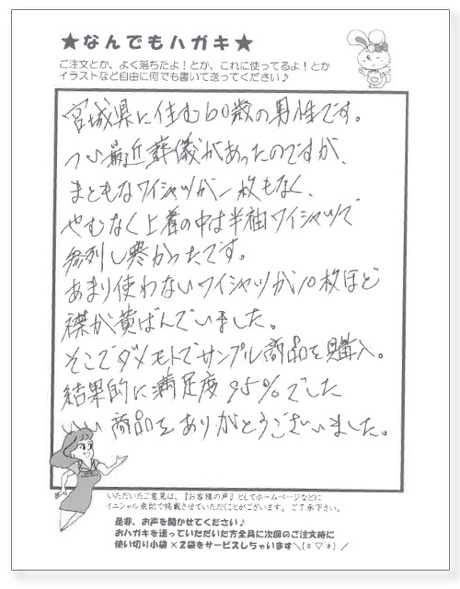 ★なんでもハガキ★
ご注文とか、よく落ちたよ！とか、これに使ってるよ！とか
イラストなど自由に何でも書いて送ってください♪
宮城県に住む60歳の男性です。
つい最近葬儀があったのですが、
まともなワイシャツが一枚もなく、
やむなく上着の中は半袖ワイシャツで
参列し寒かったです。
あまり使わないワイシャツが10枚ほど
襟が黄ばんでいました。
そこでダメモトでサンプル商品を購入。
結果的に満足度95%でした
いい商品をありがとうございました。
いただいたご意見は、『お客様の声』としてホームページなどに
イニシャル表記で掲載させていただくことがございます。ご了承下さい。
是非、お声を聞かせてください♪
おハガキを送っていただいた方全員に次回のご注文時に
使い切り小袋×2袋をサービスしちゃいます＼(*´▽`*)／